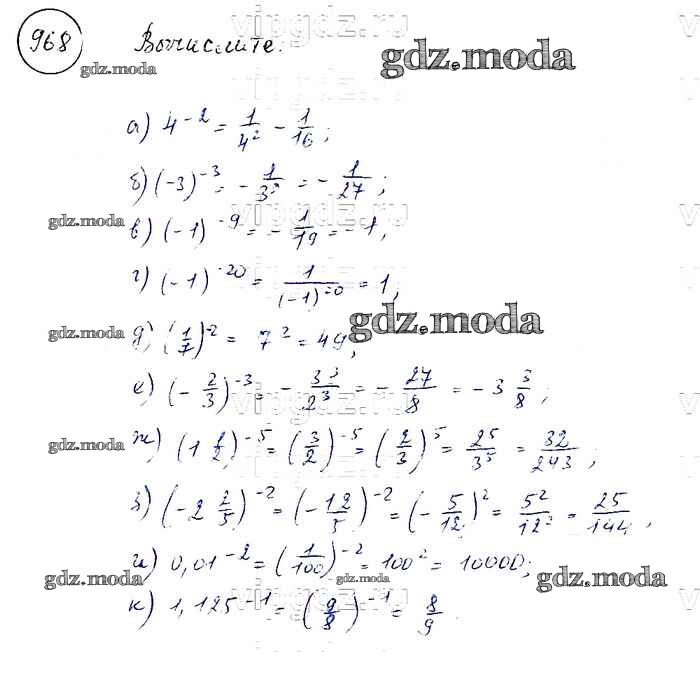 968 Вычислите:
vipgdz.ru
gdz.moda
gdz.moda
а) 4^{-2} = \frac{1}{4^2} - \frac{1}{16};
б) (-3)^{-3} = -\frac{1}{3^3} = -\frac{1}{27};
vipgdz.ru
gdz.moda
в) (-1)^{-9} = -\frac{1}{1^9} = -1,
г) (-1)^{-20} = \frac{1}{(-1)^{20}} = 1,
gdz.moda
gdz.moda
д) (\frac{1}{7})^{-2} = 7^2 = 49,
е) (-\frac{2}{3})^{-3} = -\frac{3^3}{2^3} = -\frac{27}{8} = -3\frac{3}{8};
vipgdz.ru
gdz.moda
gdz.moda
ж) (1\frac{1}{2})^{-5} = (\frac{3}{2})^{-5} = (\frac{2}{3})^5 = \frac{2^5}{3^5} = \frac{32}{243};
з) (-2\frac{2}{5})^{-2} = (-\frac{12}{5})^{-2} = (-\frac{5}{12})^2 = \frac{5^2}{12^2} = \frac{25}{144},
gdz.moda
и) 0,01^{-2} = (\frac{1}{100})^{-2} = 100^2 = 10000;
gdz.moda
gdz.moda
к) 1,125^{-1} = (\frac{9}{8})^{-1} = \frac{8}{9}
vipgdz.ru
gdz.moda